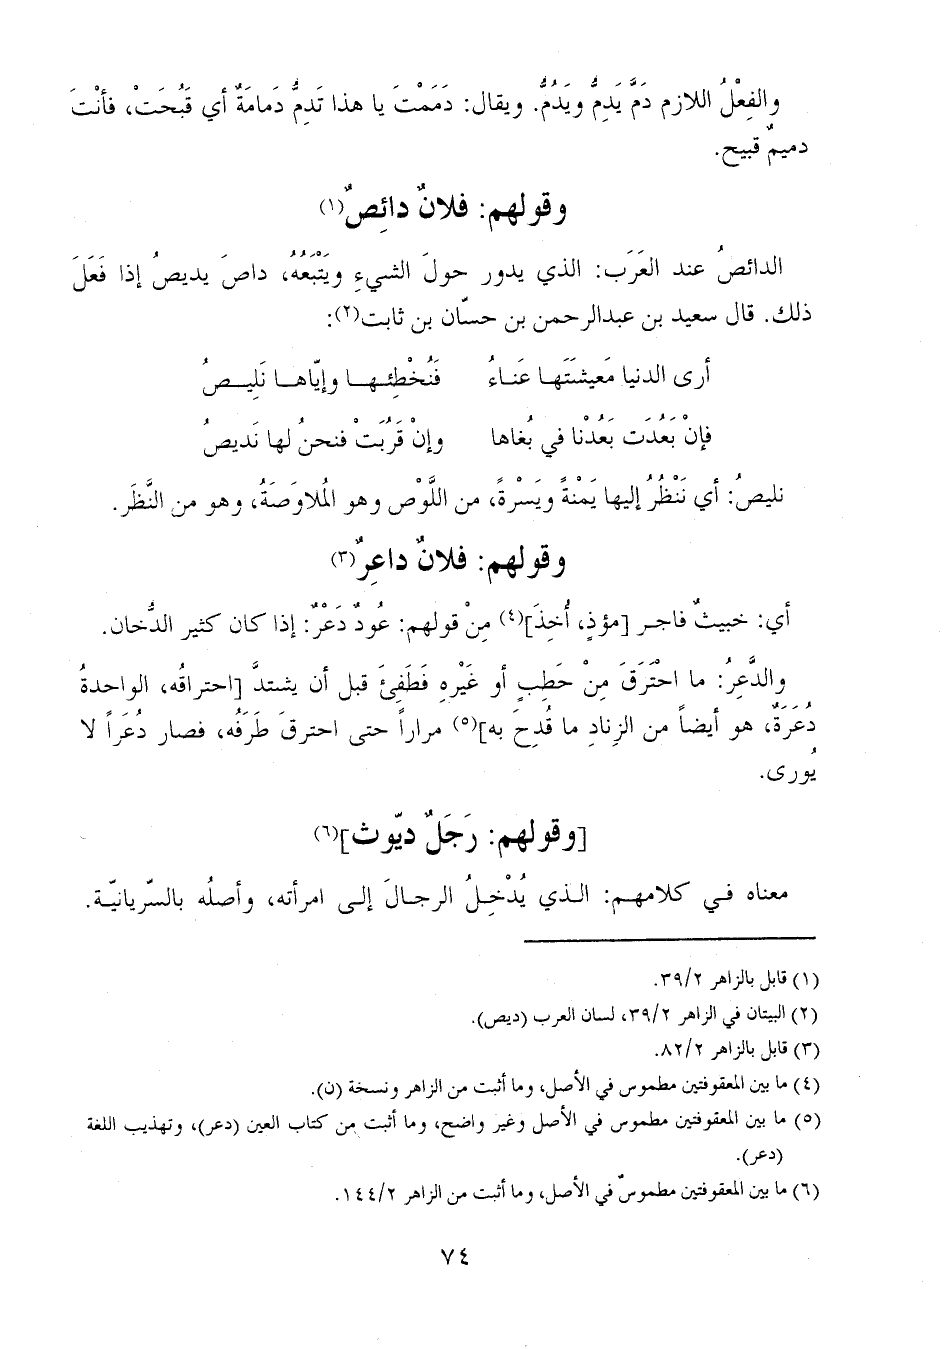 والفِعْلُ اللازم دَمَّ يَدِمُّ ويَدُمُّ. ويقال: دَمَمْتَ يا هذا تَدِمُّ دَمامَةً أي قَبُحَتْ، فأنْتَ
دميمٌ قبيح.
وقولهم: فلانٌ دائِصٌ(١)
الدائصُ عند العَرَب: الذي يدور حولَ الشيءِ ويَتْبَعُهُ، داصَ يديصُ إذا فَعَلَ
ذلك. قال سعيد بن عبدالرحمن بن حسّان بن ثابت(٢):
أرى الدنيا مَعيشَتَها عَناءُ فَنُخْطِئِها وإيّاها نَلِيصُ
فإنْ بَعُدَت بَعُدْنا في بُغاها وإنْ قَرُبَتْ فنحنُ لها نَديصُ
نليصُ: أي نَنْظُرُ إليها يَمْنةً ويَسْرةً، من اللَّوْص وهو المُلاوَصَةُ، وهو من النَّظَر.
وقولهم: فلانٌ داعِرٌ(٣)
أي: خبيثٌ فاجر [مؤذٍ، أُخِذَ](٤) مِنْ قولهم: عُودٌ دَعْرٌ: إذا كان كثير الدُّخان.
والدَّعِرُ: ما احْتَرَقَ مِنْ حَطِبٍ أو غَيْرِهِ فَطَفِئَ قبل أن يشتدَّ [احتراقُه، الواحدةُ
دُعَرَةٌ، هو أيضاً من الزِنادِ ما قُدِحَ به](٥) مراراً حتى احترقَ طَرَفُه، فصار دُعَراً لا
يُورى.
[وقولهم: رَجَلٌ ديّوث](٦)
معناه في كلامهم: الذي يُدْخِلُ الرجالَ إلى امرأته، وأصلُه بالسّريانيّة.
(١) قابل بالزاهر ٣٩/٢.
(٢) البيتان في الزاهر ٣٩/٢، لسان العرب (ديص).
(٣) قابل بالزاهر ٨٢/٢.
(٤) ما بين المعقوفتين مطموس في الأصل، وما أثبت من الزاهر ونسخة (ن).
(٥) ما بين المعقوفتين مطموس في الأصل وغير واضح، وما أثبت من كتاب العين (دعر)، وتهذيب اللغة
(دعر).
(٦) ما بين المعقوفتين مطموسٌ في الأصل، وما أثبت من الزاهر ١٤٤/٢.
٧٤